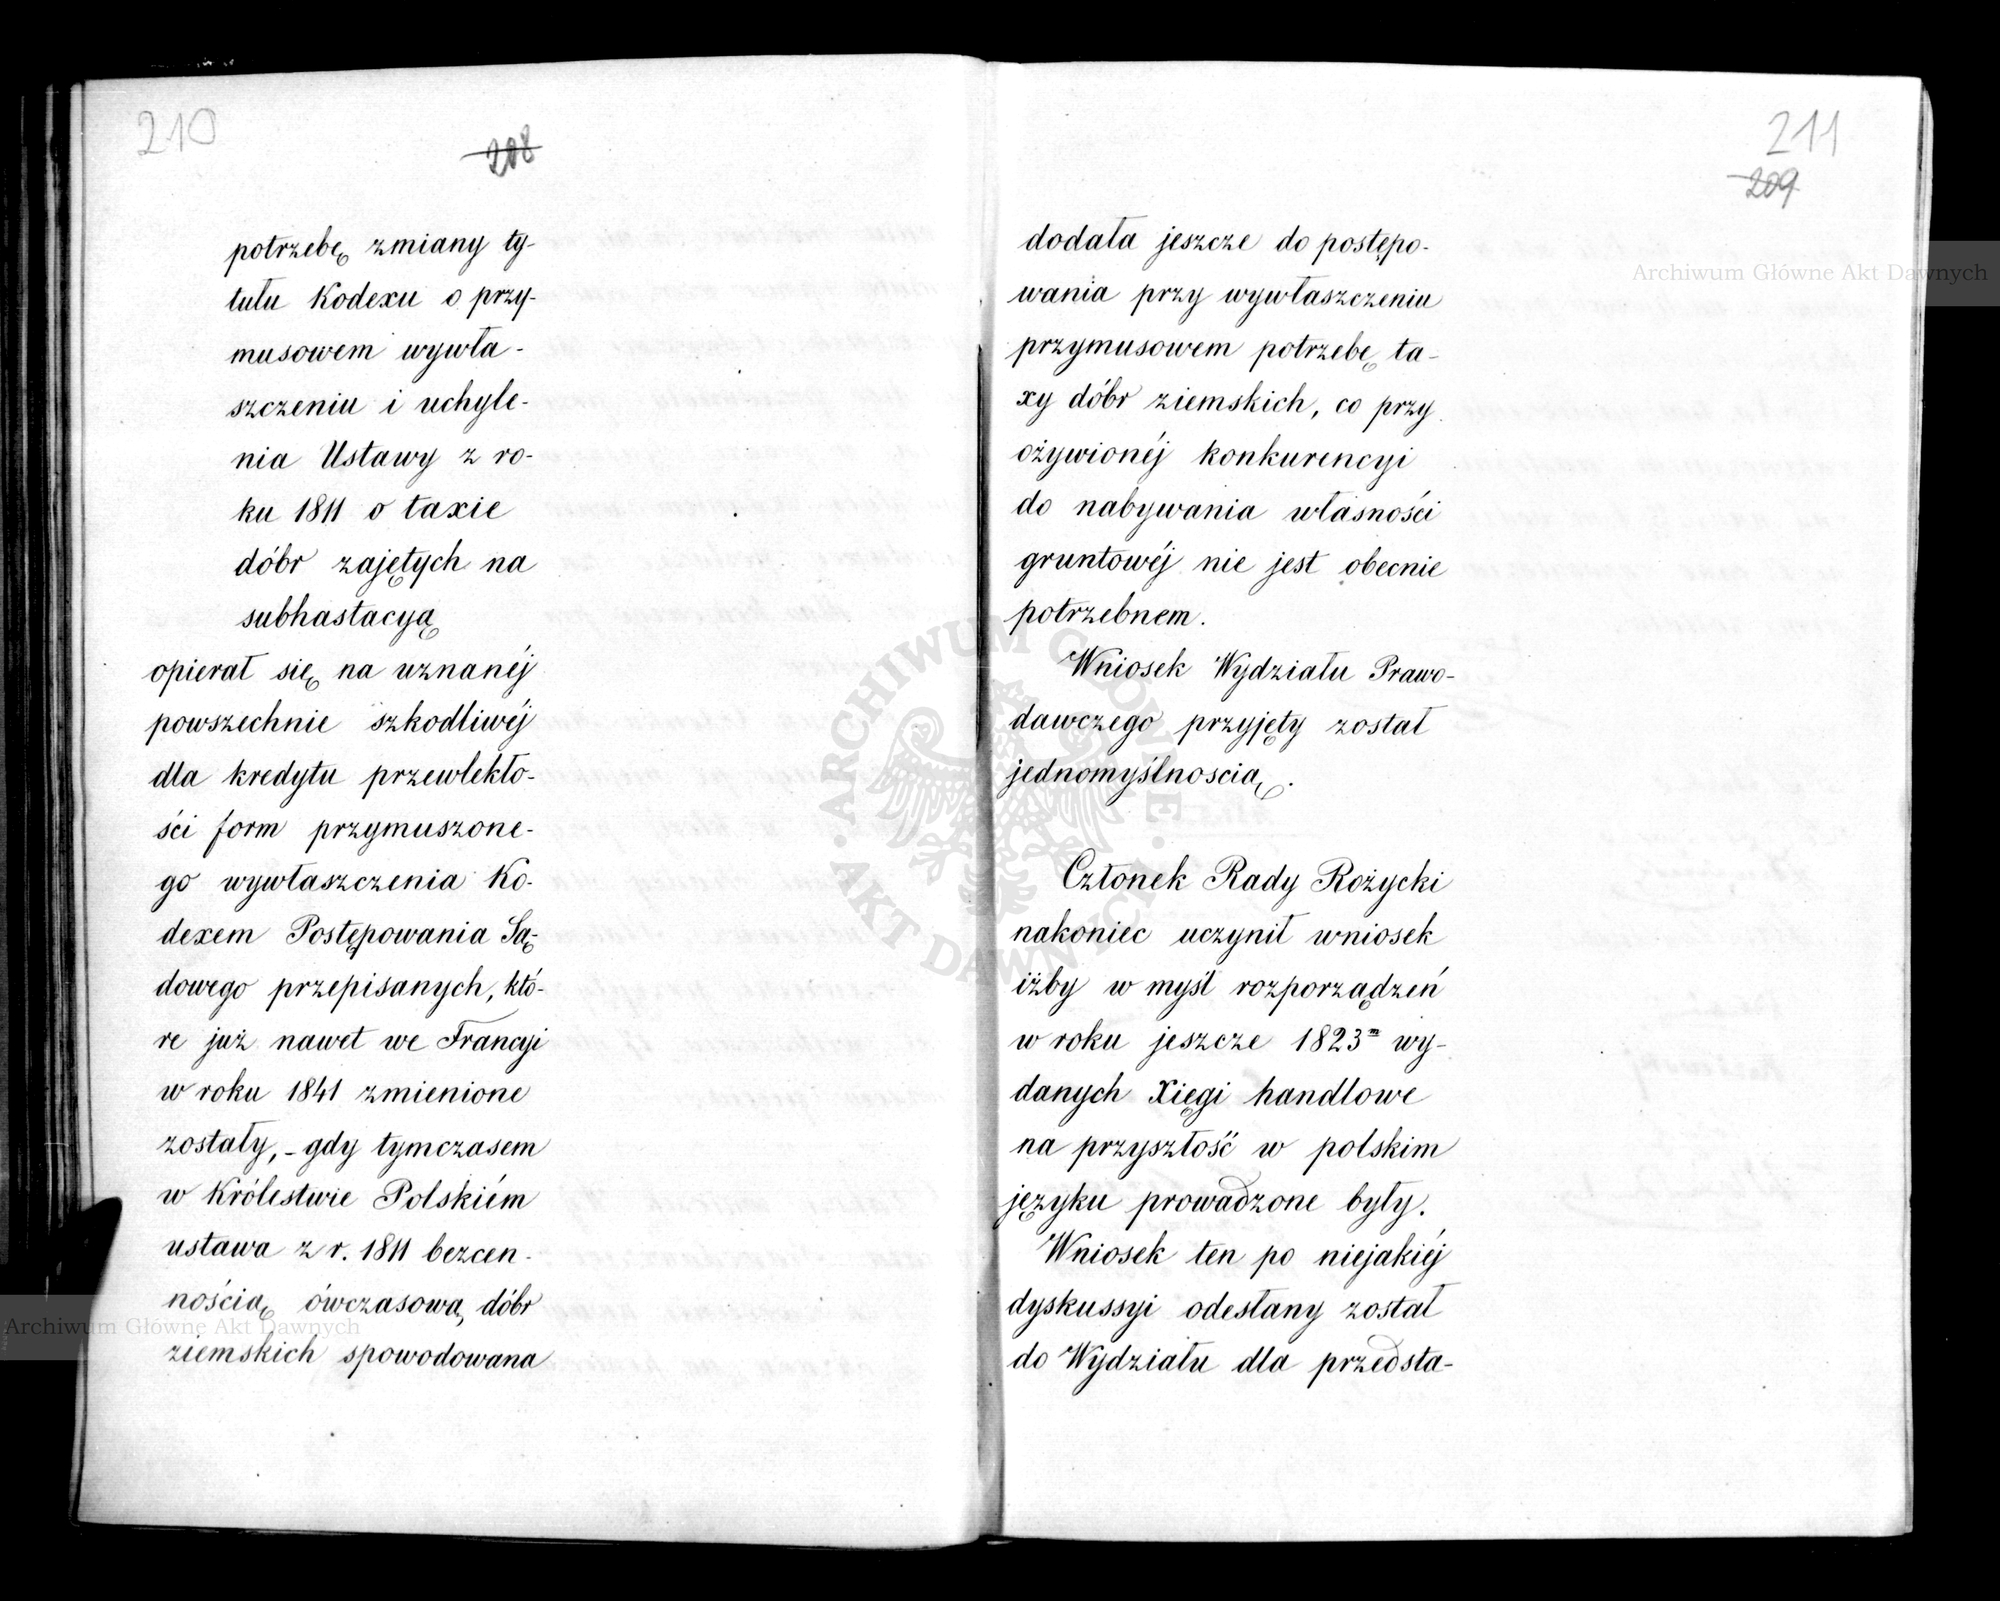 210
208
potrzebę zmiany ty-
tułu Kodexu o przy-
musowem wywła-
szczeniu i uchyle-
nia Ustawy z ro-
ku 1811 o taxie
dóbr zajętych na
subhastacyą
opierał się na uznanéj
powszechnie szkodliwéj
dla kredytu przewlekło-
ści form przymuszone-
go wywłaszczenia Ko-
dexem Postępowania Są-
dowego przepisanych, któ-
re już nawet we Francyi
w roku 1841 zmienione
zostały, - gdy tymczasem
w Królestwie Polskiém
ustawa z r. 1811 bezcen-
nością ówczasową dóbr
ziemskich spowodowana
211
209
dodała jeszcze do postępo-
wania przy wywłaszczeniu
przymusowem potrzebę ta-
xy dóbr ziemskich, co przy
ożywionéj konkurencyi
do nabywania własności
gruntowéj nie jest obecnie
potrzebnem.
Wniosek Wydziału Prawo-
dawczego przyjęty został
jednomyślnoscią.
Członek Rady Rożycki
nakoniec uczynił wniosek
iżby w myśl rozporządzeń
w roku jeszcze 1823m wy-
danych Xięgi handlowe
na przyszłość w polskim
języku prowadzone były.
Wniosek ten po niejakiéj
dyskussyi odesłany został
do Wydziału dla przedsta-
Archiwum Główne Akt Dawnych
Archiwum Główne Akt Dawnych
ARCHIWUM GŁÓWNE AKT DAWNYCH